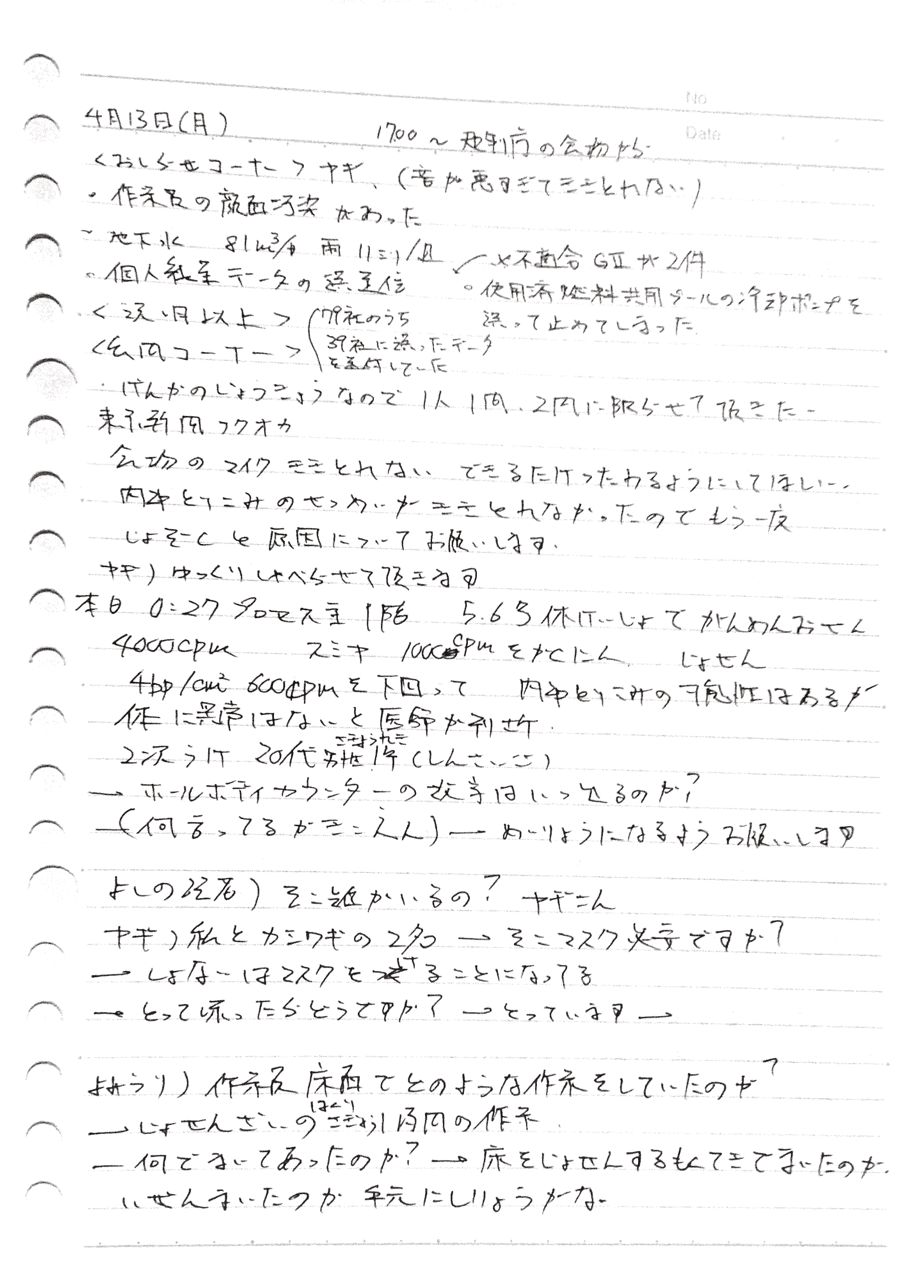 No
Date
4月13日(月) 1700～規制庁の会初から
<おしらせコーナー> ヤギ、(音が悪すぎてききとれない)
・作業員の顔面汚染があった
~地下水 81m³/h 雨 11ミリ/日
✓ ※不適合 GⅡが2件
・個人線量データの誤送信
・使用済燃料共用プールの冷却ポンプを
誤って止めてしまった
<説明以上> 79社のうち
39社に誤ったデータ
を送付していた
<質問コーナー>
・げんかのじょうきょうなので1人1問、2問に限らせて頂きたー
東京新聞フクオカ
会場のマイクききとれない できるだけつたわるようにしてほしい..
内部とりこみのせつめいがききとれなかったのでもう一度
原因についてお願いします.
ヤギ) ゆっくりしゃべらせて頂きます
本日 0:27 プロセス主1階 5.6号休けいじょでがんめんおせん
4000cpm スミヤ 1000cpmをかくにん じょせん
4bp/cm² 600cpmを下回って 内部とりこみの可能性はあるが
体に異常はないと医師が判断
2次うけ 20代男性 さぎょうれき 1年 (しんさいご)
→ ホールボディカウンターの数字はいつ出るのか?
―(何言ってるかきこえん)― めいりょうになるようお願いします
よしの記者) そこ誰がいるの? ヤギさん
ヤギ) 私とカシワギの2名 → そこマスク必要ですか?
→ しょないはマスクをつけることになってる
→ とって喋ったらどうですか? → とっています →
よみうり) 作業員 床面でどのような作業をしていたのか?
→ じょせんざいのはくり さぎょう 1時間の作業
― 何でまいてあったのか? → 床をじょせんするもくてきでまいたのか.
いぜんまいたのか 手元にしりょうがな.